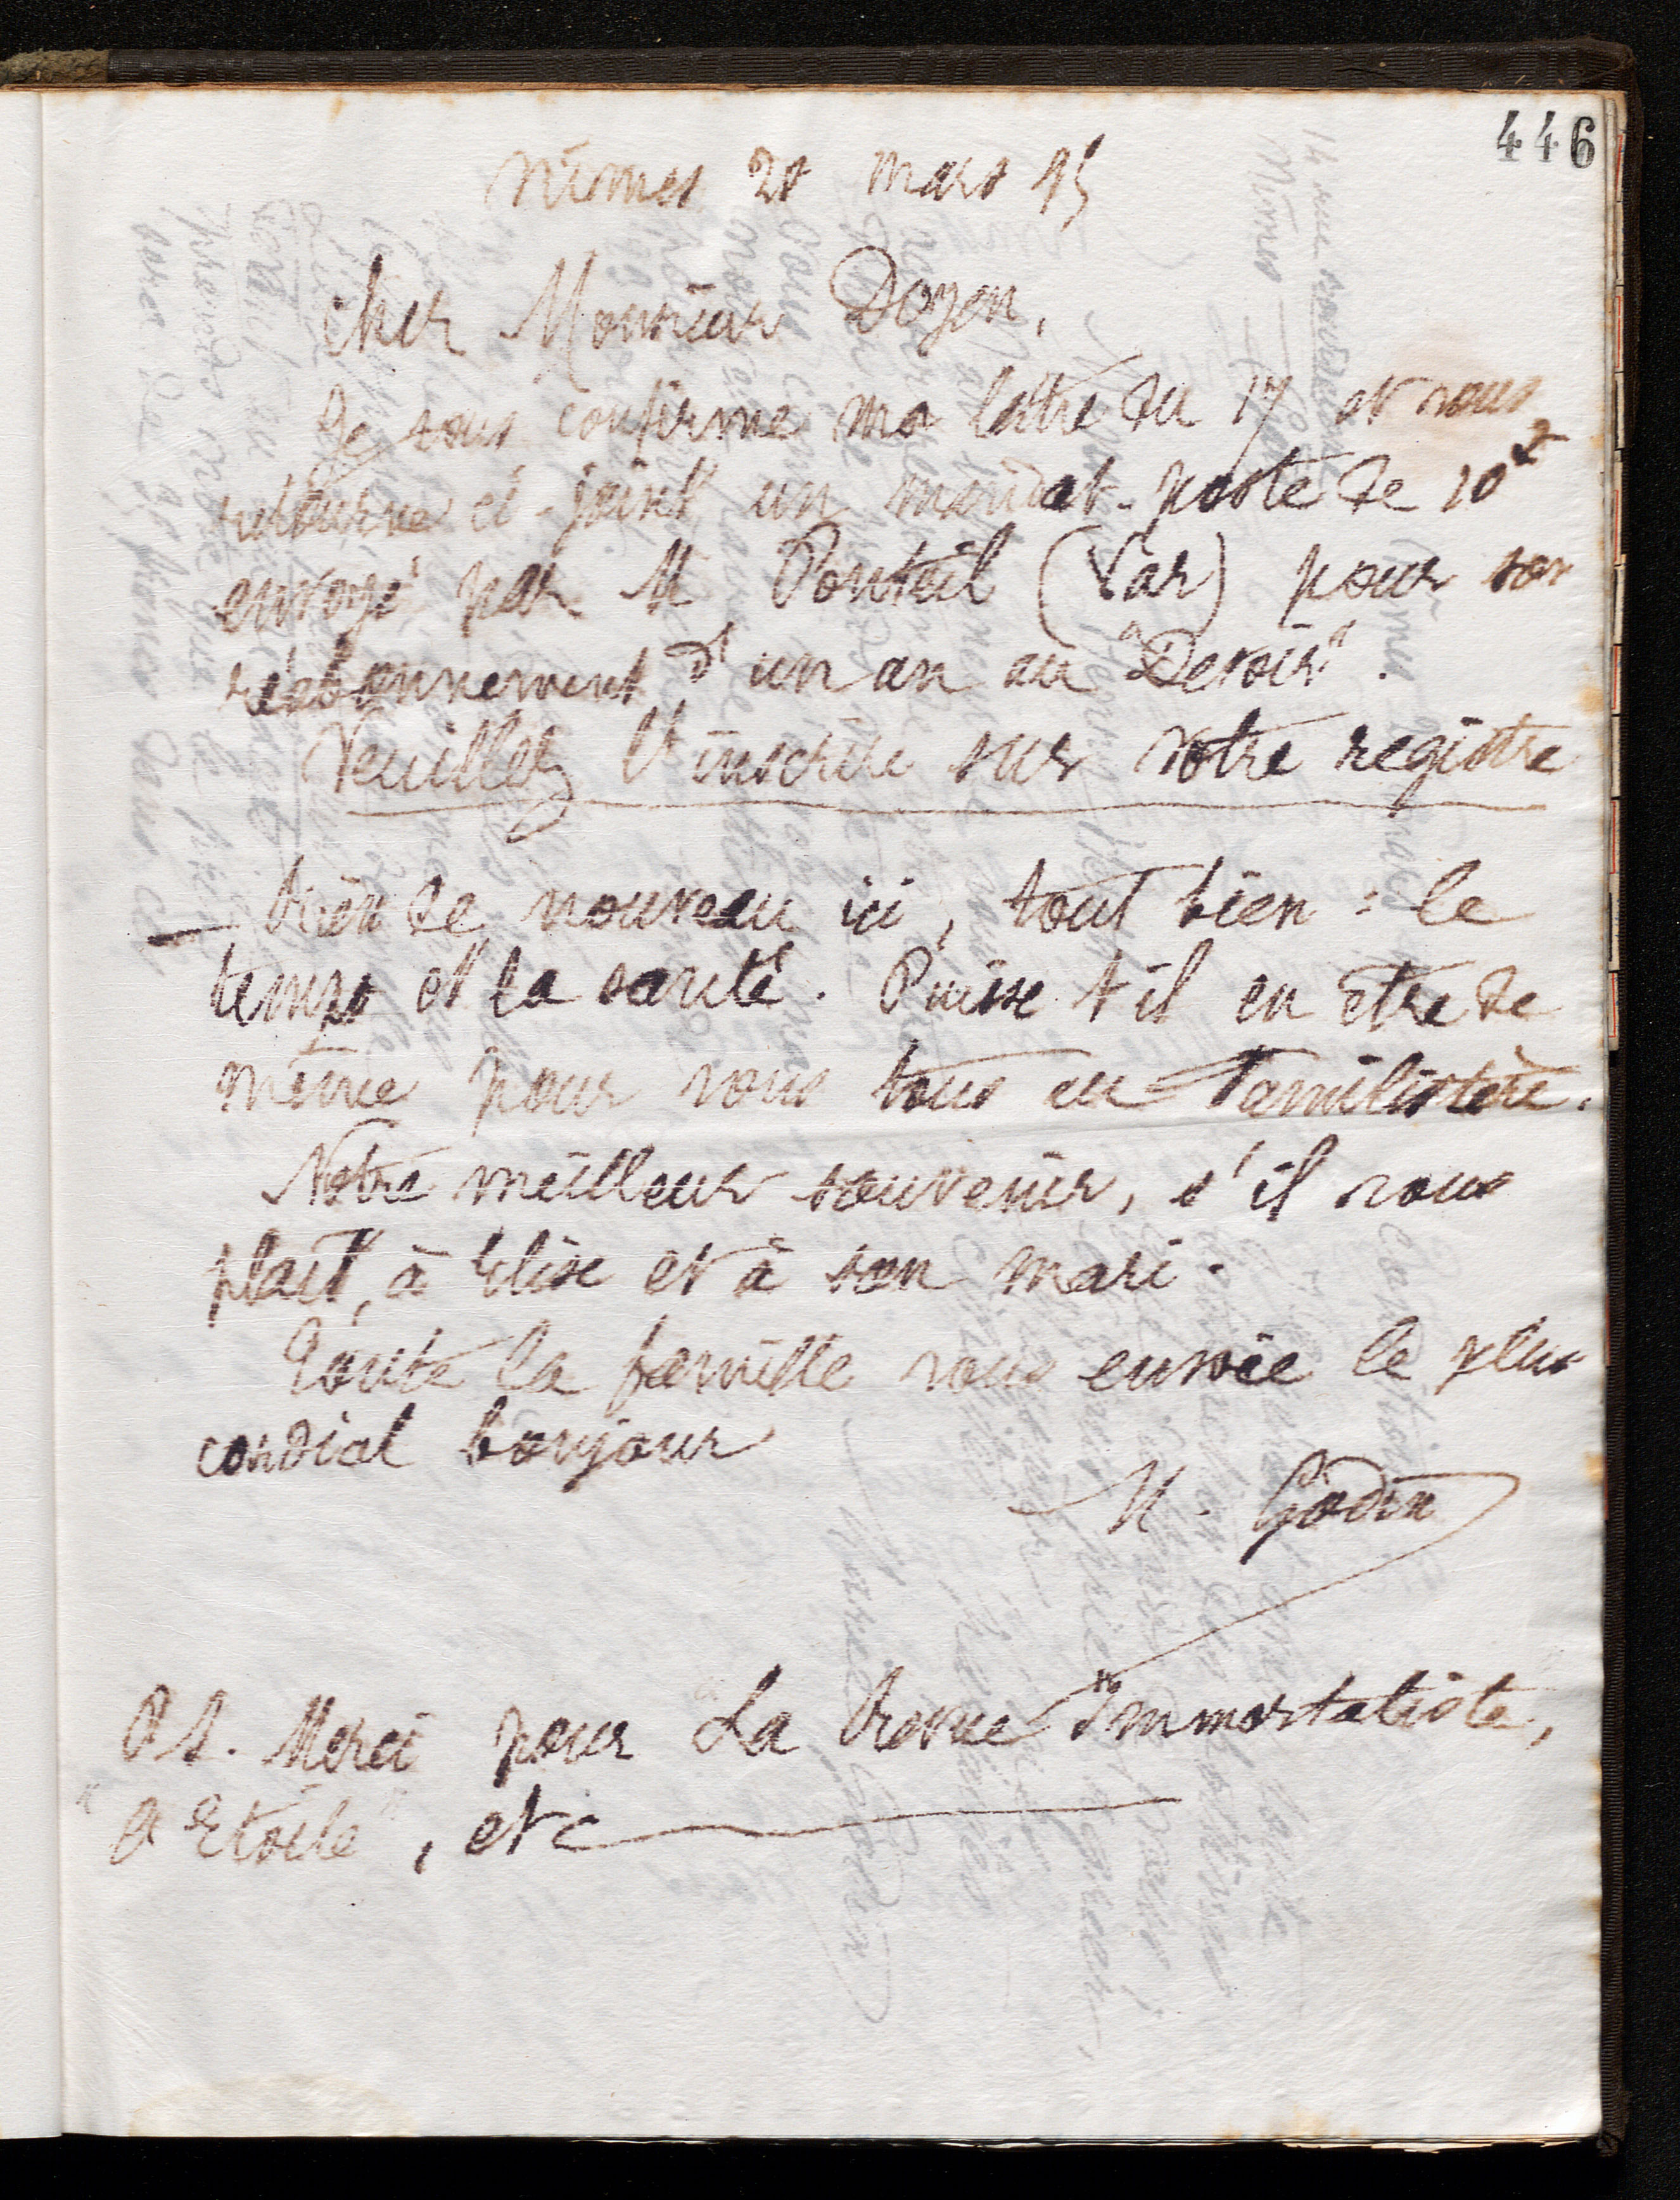 446
Nîmes 20 mars 95
Cher Monsieur Doyen,
Je vous confirme ma lettre du 17 et vous
retourne ci-joint un mandat-poste de 10f
envoyé par M Ponteil (Var) pour son
réabonnement d'un an au "Devoir".
Veuillez l'inscrire sur votre registre
Rien de nouveau ici, tout bien : le
temps et la santé. Puisse t il en être de
même pour vous tous au Familistère.
Notre meilleur souvenir, s'il vous
plait, à Elise et à son mari.
Toute la famille vous envoie le plus
cordial bonjour
M. Godin
PS. Merci pour "La Revue Immortaliste",
"L'Etoile", etc